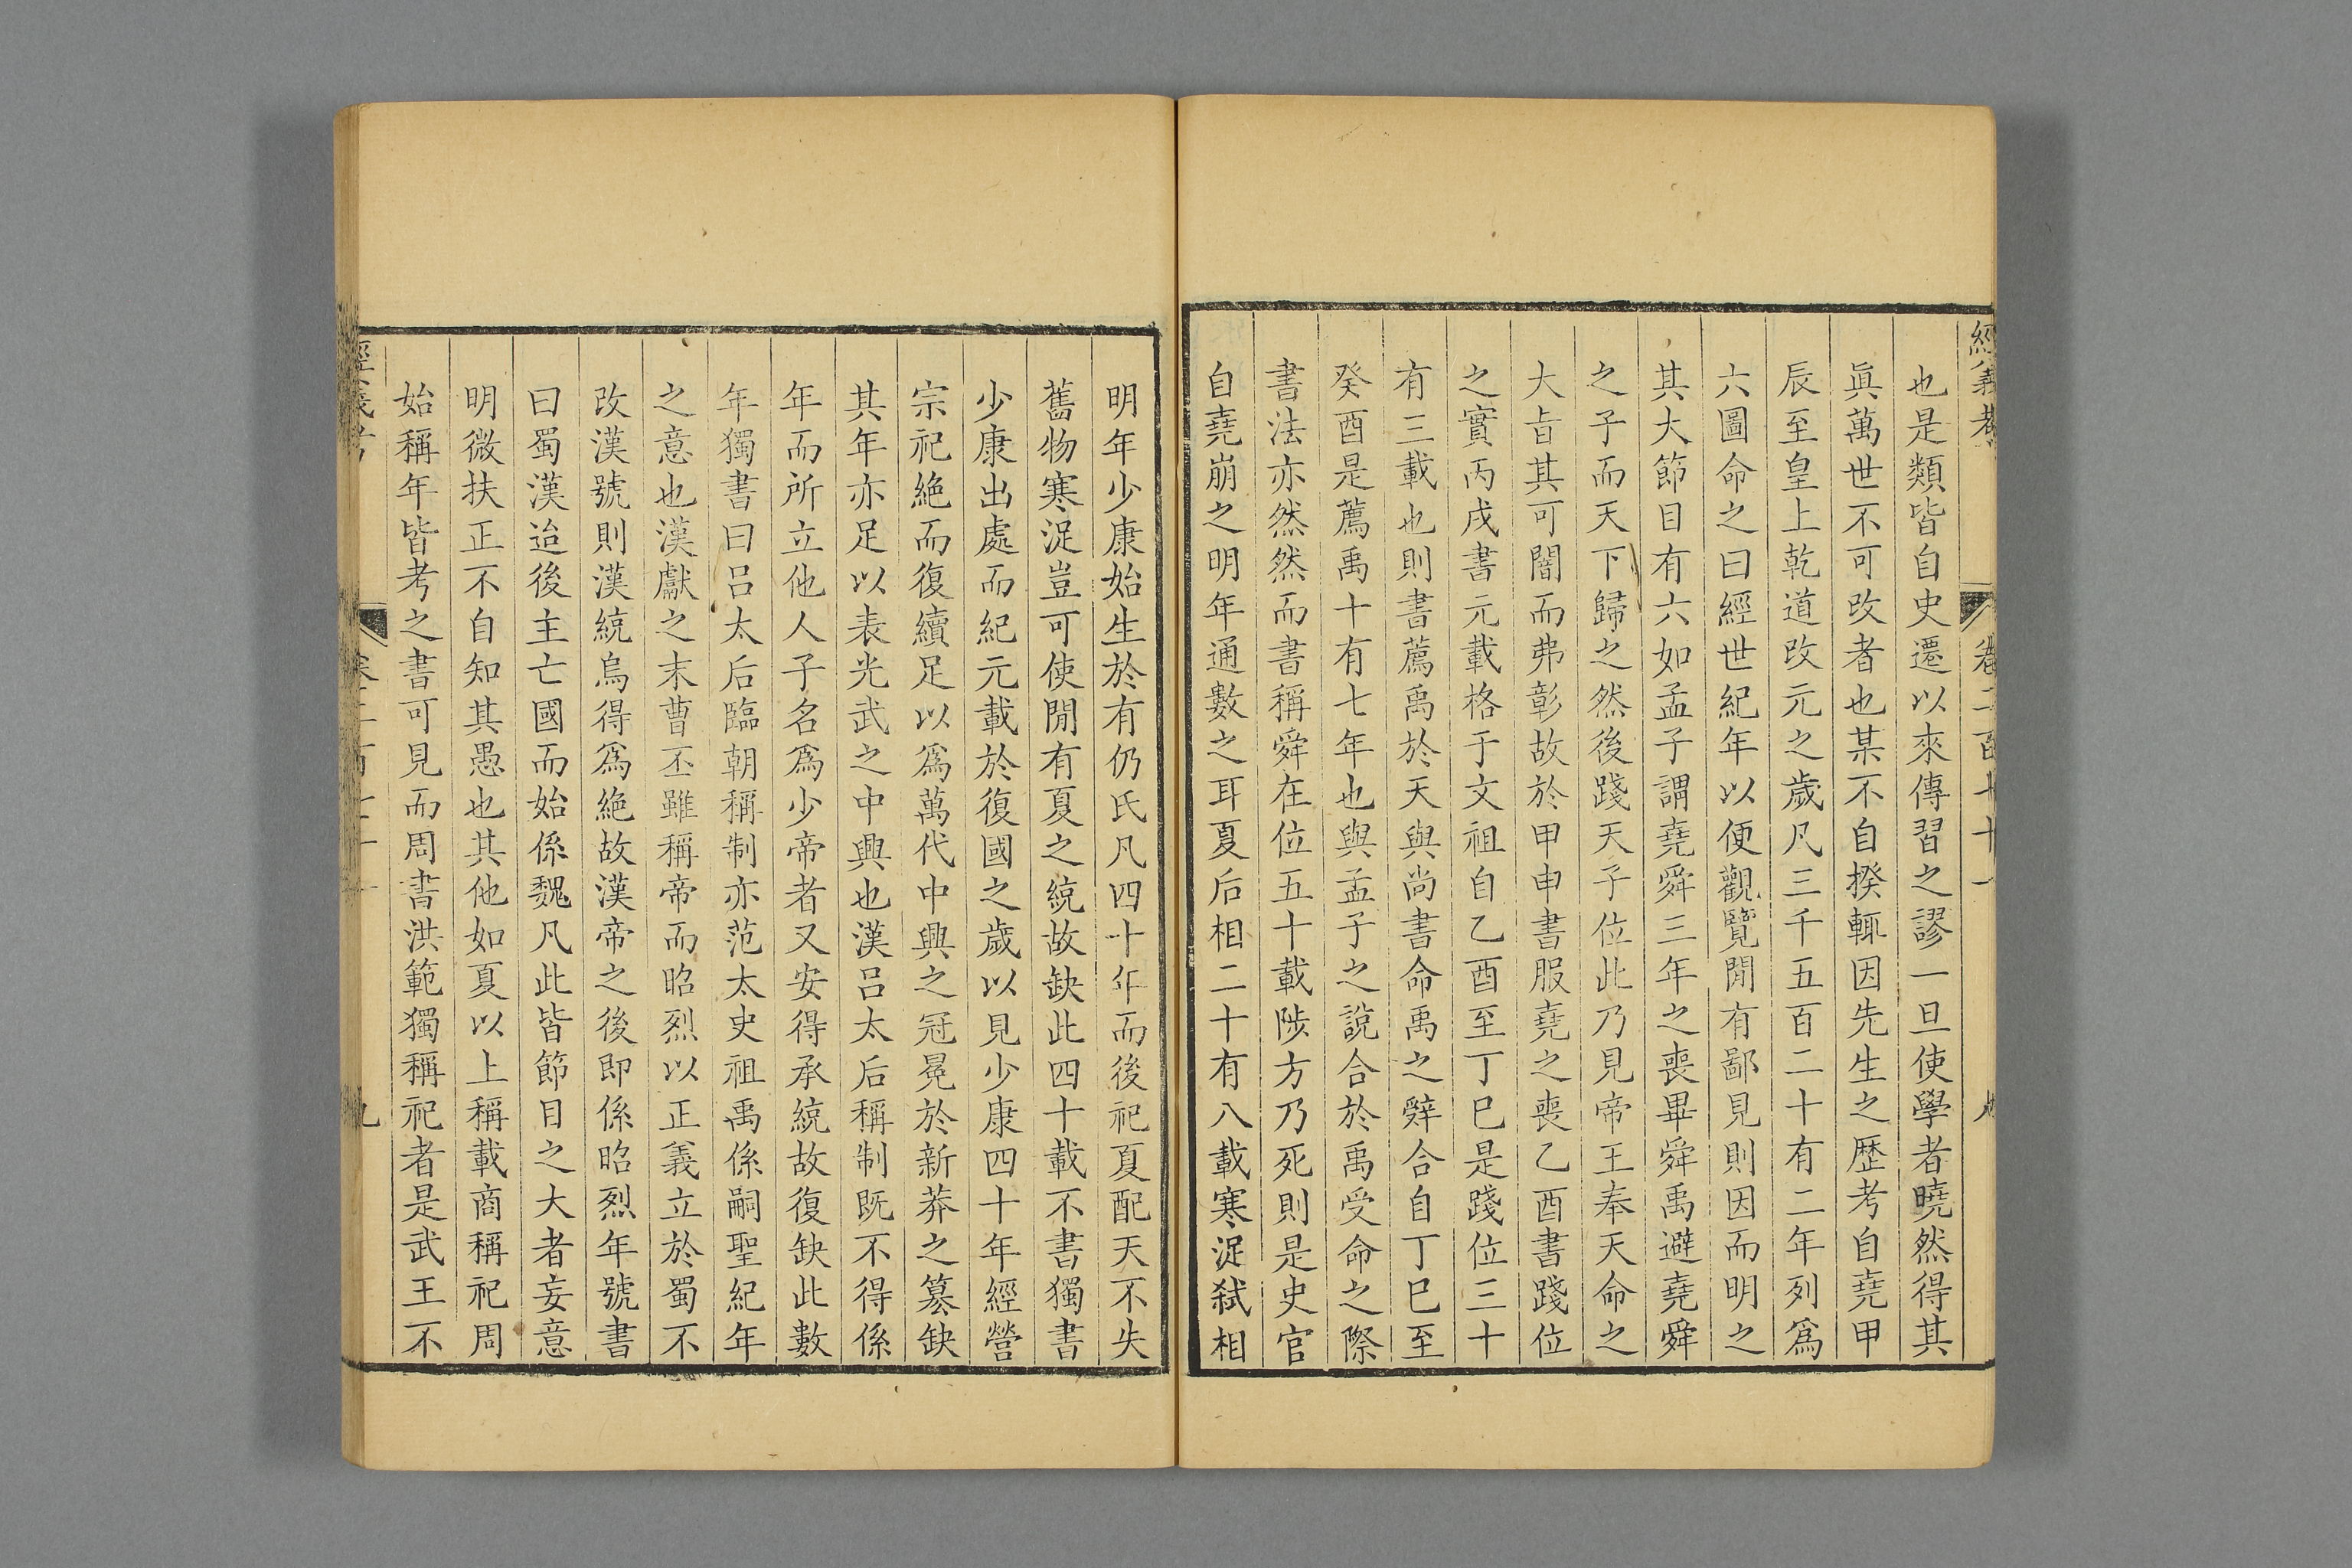 也是類皆自史遷以來傳習之謬一旦使學者曉然得其
眞萬世不可改者也某不自揆輒因先生之歴考自堯甲
辰至皇上乾道改元之歲凡三千五百二十有二年列爲
六圖命之曰經世紀年以便觀覽閒有鄙見則因而明之
其大節目有六如孟子謂堯舜三年之喪畢舜禹避堯舜
之子而天下歸之然後踐天子位此乃見帝王奉天命之
大旨其可闇而弗彰故於甲申書服堯之喪乙酉書踐位
之實丙戌書元載格于文祖自乙酉至丁巳是踐位三十
有三載也則書薦禹於天與尚書命禹之辭合自丁巳至
癸酉是薦禹十有七年也與孟子之說合於禹受命之際
書法亦然然而書稱舜在位五十載陟方乃死則是史官
自堯崩之明年通數之耳夏后相二十有八載寒浞弑相
明年少康始生於有仍氏凡四十年而後祀夏配天不失
舊物寒浞豈可使閒有夏之統故缺此四十載不書獨書
少康出處而紀元載於復國之歲以見少康四十年經營
宗祀絶而復續足以爲萬代中興之冠冕於新莽之簒缺
其年亦足以表光武之中興也漢呂太后稱制既不得係
年而所立他人子名爲少帝者又安得承統故復缺此數
年獨書曰呂太后臨朝稱制亦范太史祖禹係嗣聖紀年
之意也漢獻之末曹丕雖稱帝而昭烈以正義立於蜀不
改漢號則漢統烏得爲絶故漢帝之後即係昭烈年號書
曰蜀漢迨後主亡國而始係魏凡此皆節目之大者妄意
明微扶正不自知其愚也其他如夏以上稱載商稱祀周
始稱年皆考之書可見而周書洪範獨稱祀者是武王不